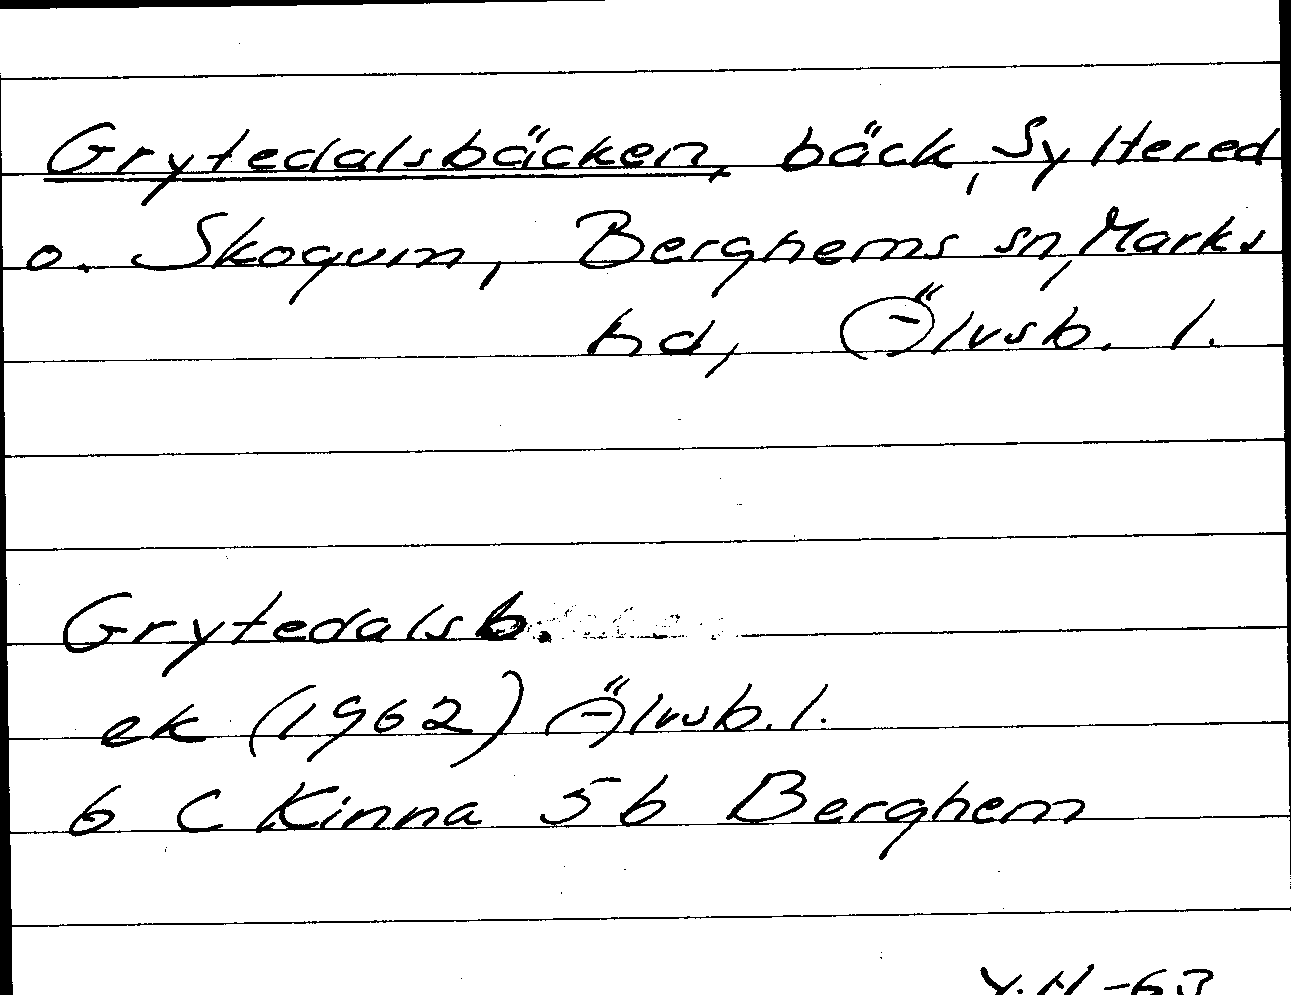 Grytedalsbäcken, bäck, Syltered
o. Skogum, Berghems sn, Marks
hd, Älvsb. l.
Grytedalsb.
ek (1962) Älvsb. l.
6 C Kinna 5 b Berghem